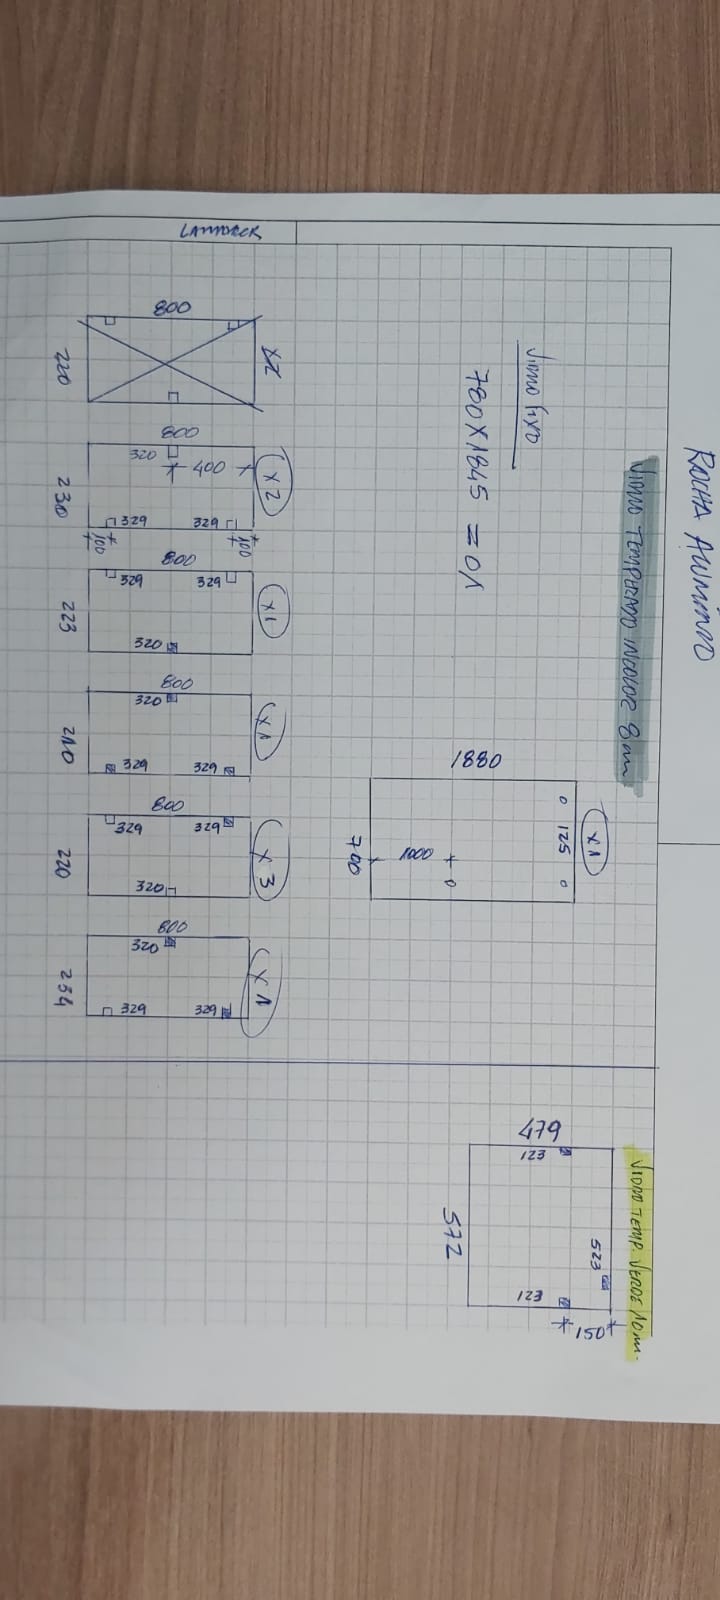 ROCHA ALUMINIO
VIDRO TEMPERADO INCOLOR 8mm
VIDRO TEMP. VERDE 10mm.
VIDRO FIXO
780X1845 = 01
X1
125
1880
1000
700
479
123
523
123
150
572
X2
800
220
X2
800
320
400
329
329
100
100
230
X1
800
329
329
320
223
X1
800
320
329
329
210
X3
800
329
329
320
220
X1
800
320
329
329
234